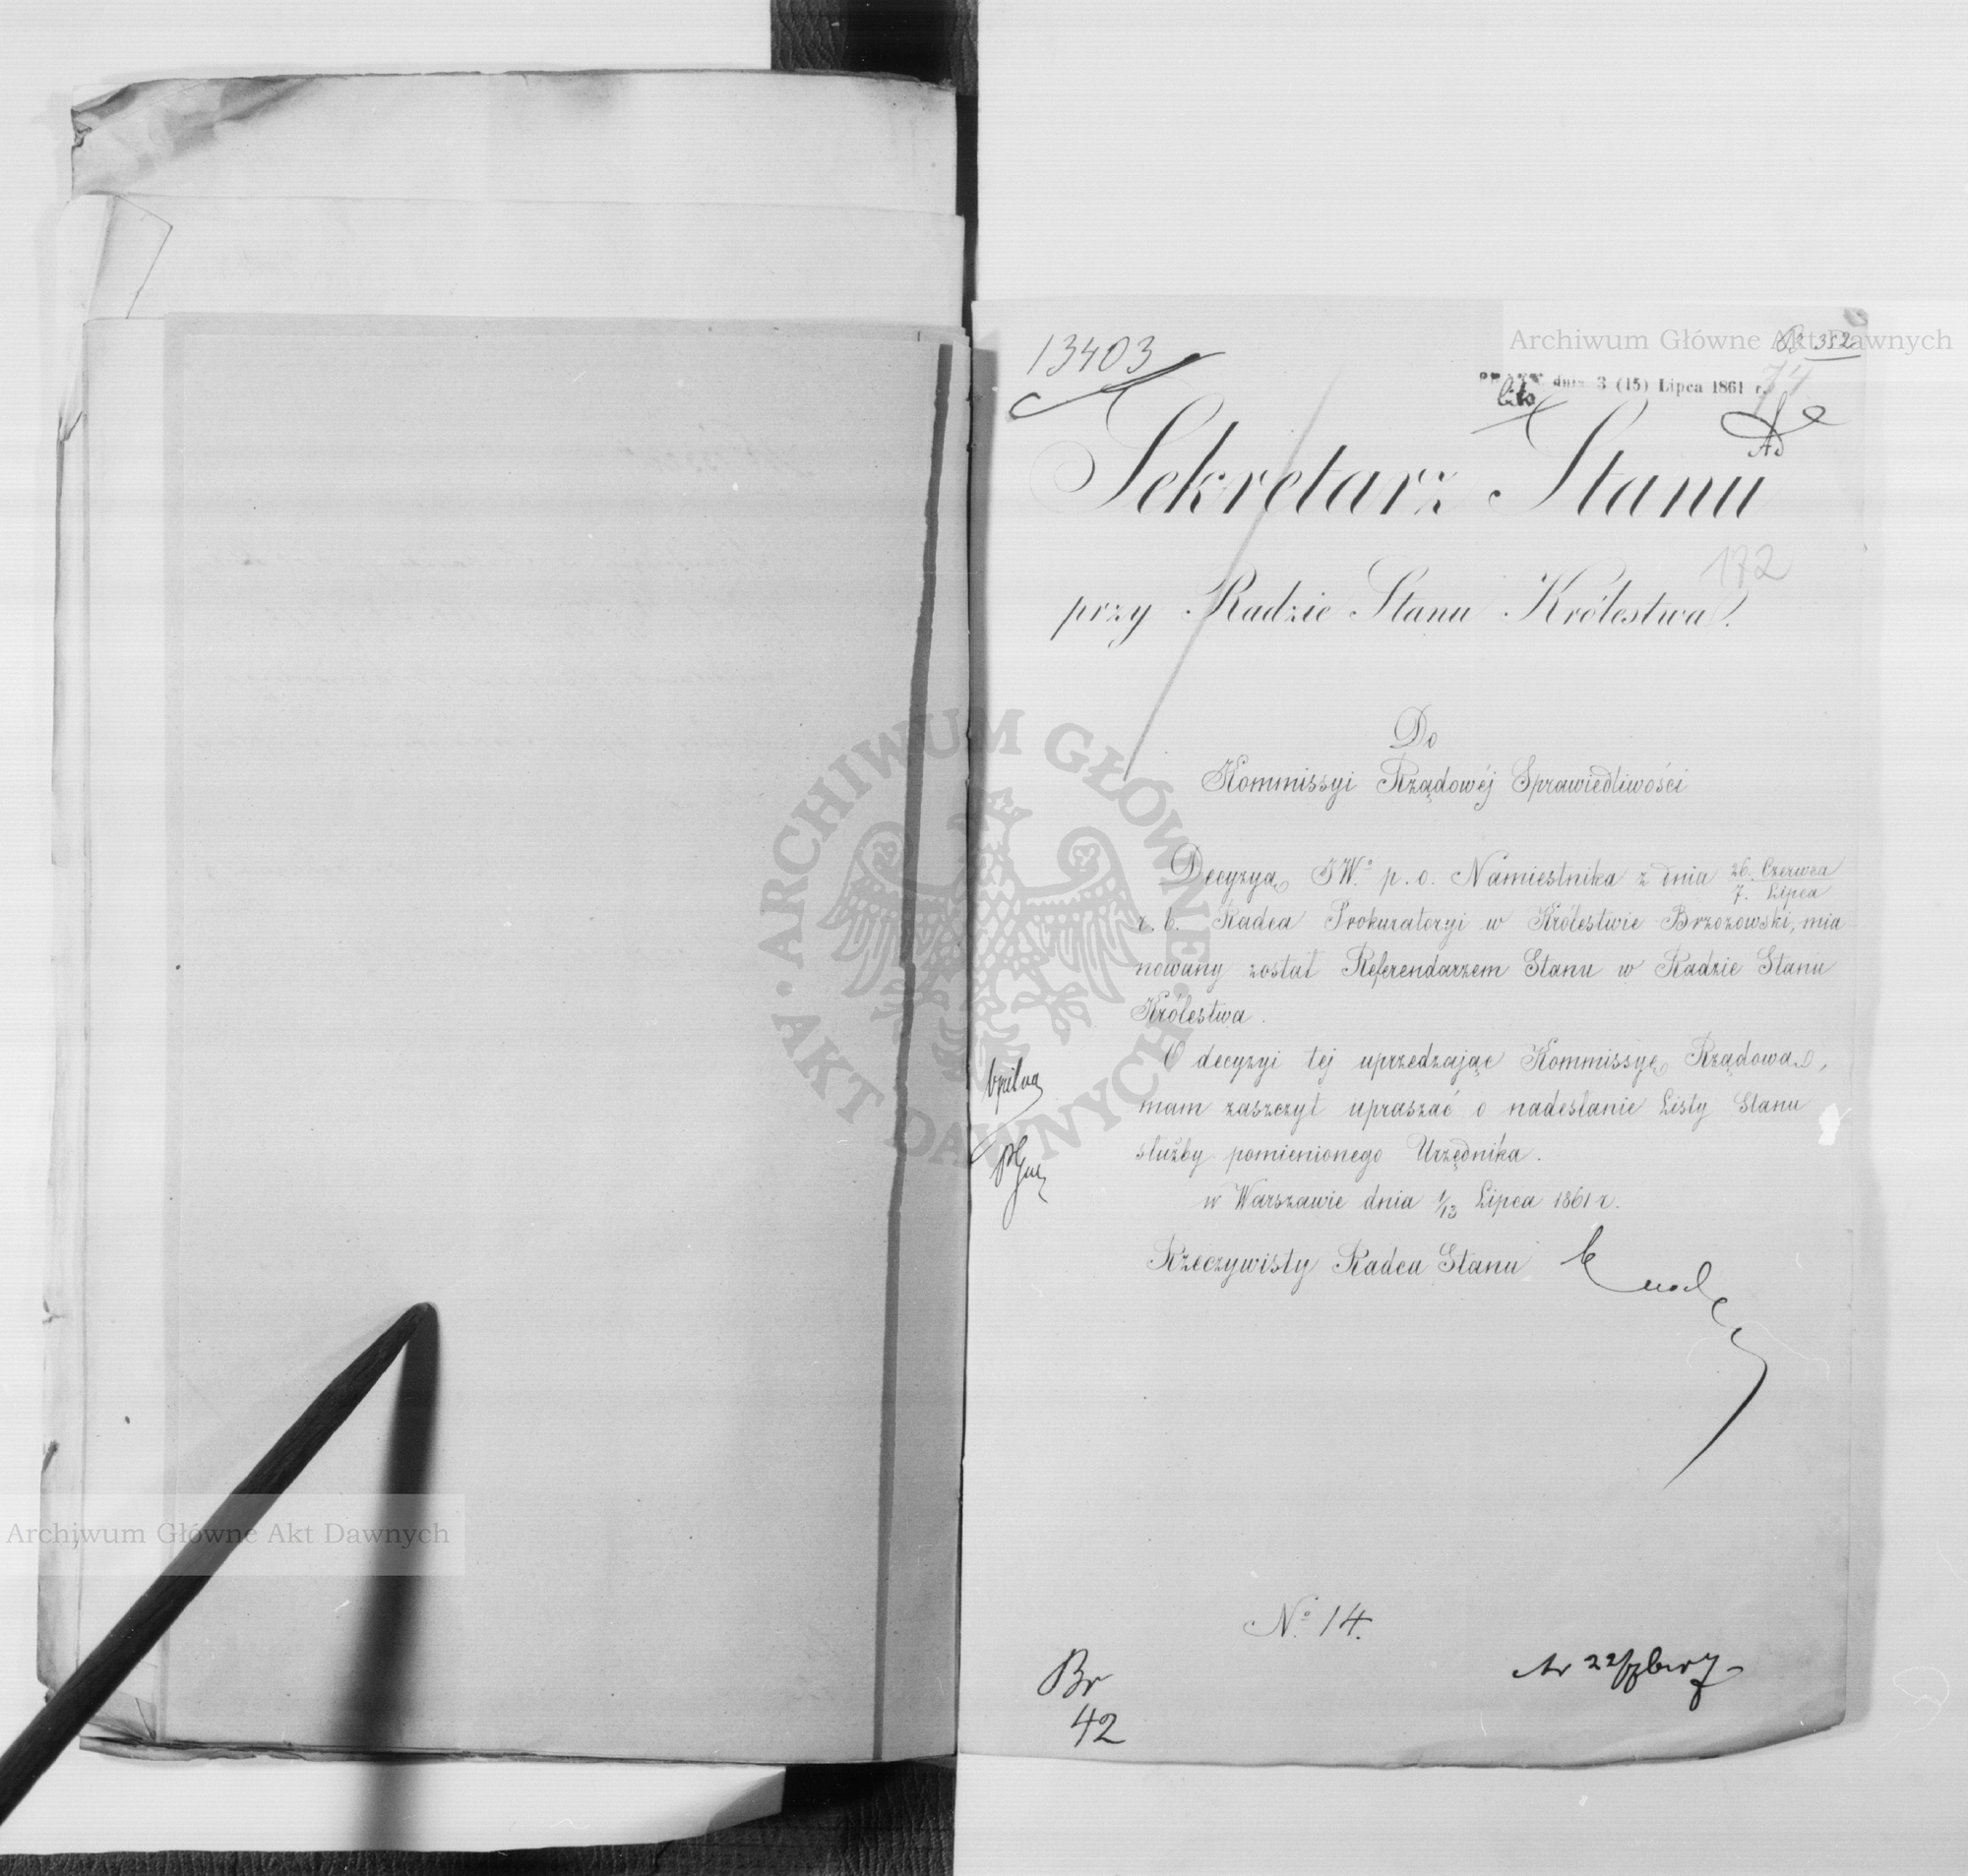 13403
Br 352
74
dnia 3 (15) Lipca 1861 r.
Ad
Sekretarz Stanu
172
przy Radzie Stanu Królestwa.
Do
Kommissyi Rządowéj Sprawiedliwości
Decyzyą JWº p. o. Namiestnika z dnia 26. Czerwca / 7. Lipca
r. b. Radca Prokuratoryi w Królestwie Brzozowski, mia
nowany został Referendarzem Stanu w Radzie Stanu
Królestwa.
O decyzyi tej uprzedzając Kommissyę Rządową,
mam zaszczyt upraszać o nadesłanie Listy Stanu
służby pomienionego Urzędnika.
w Warszawie dnia 1/13 Lipca 1861 r.
Rzeczywisty Radca Stanu
Nº 14.
Br
42
Archiwum Główne Akt Dawnych
ARCHIWUM GŁÓWNE AKT DAWNYCH
Archiwum Główne Akt Dawnych